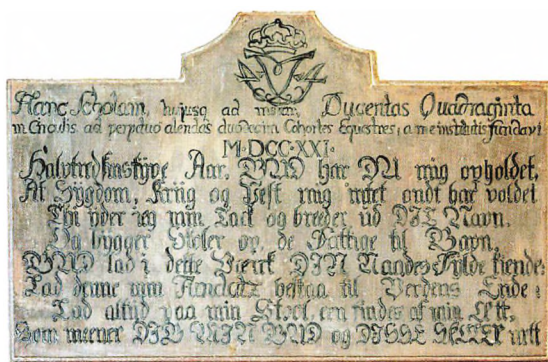 Hanc Scholam, hujusq ad instar, Ducentas Quadraginta
in Circulis ad perpetuo alendas duodecim Cohortes Equestres, a me institutis fundavi
M·DCC·XXI·
Halvtredsinstyve Aar, GUD har DU mig opholdet,
At Sygdom, Krig og Pest mig intet ondt har voldet
Thi yder jeg min Tack og breeder ud DIT Navn,
Og bygger Skoler op, de Fattige til Gavn,
GUD lad i dette Værck DIN Naades Fylde kiende,
Lad denne min Fundatz bestaa til Verdens Ende;
Lad altid paa min Stoel, een findes af min Ætt,
Som meener DIG MIN GUD og DISSE SKOLER rett